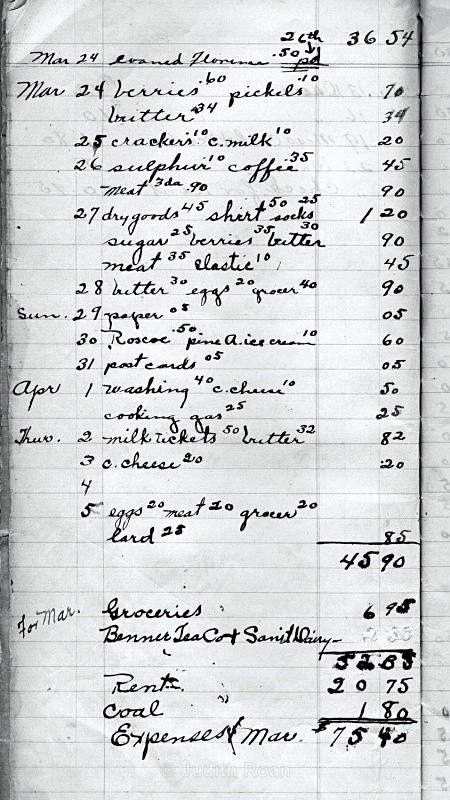 26th 36 54
Mar 24 loaned Florence .50 pd
Mar 24 berries .60 pickels .10 .70
butter 34 34
25 crackers 10 c. milk 10 20
26 sulphur 10 coffee .35 45
meat 3da .90 90
27 drygoods 45 shirt .50 socks 25 1 20
sugar 25 berries 35 butter 30 90
meat 35 elastic 10 45
28 butter 30 eggs 20 grocer 40 90
Sun. 29 paper 05 05
30 Roscoe .50 pine A. ice cream 10 60
31 post cards 05 05
Apr 1 washing 40 c. cheese 10 50
cooking gas 25 25
Thur. 2 milk tickets 50 butter 32 82
3 c. cheese 20 .20
4
5 eggs 20 meat 20 grocer 20
lard 25 85
45 90
For Mar. Groceries 6 95
Benner Tea Co & Sanit Dairy
Rent 20 75
Coal 1 80
Expenses Mar. $75 40
© Judith Roan